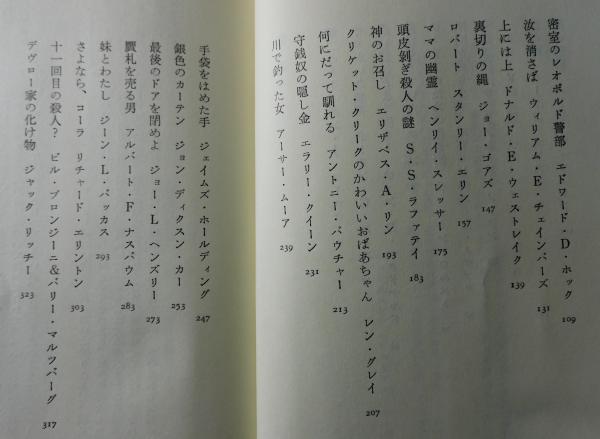 密室のレオポルド警部　エドワード・D・ホック　109
汝を消さば　ウィリアム・E・チェインバーズ　131
上には上　ドナルド・E・ウェストレイク　139
裏切りの縄　ジョー・ゴアズ　147
ロバート　スタンリー・エリン　157
ママの幽霊　ヘンリイ・スレッサー　175
頭皮剥ぎ殺人の謎　S・S・ラファティ　183
神のお召し　エリザベス・A・リン　193
クリケット・クリークのかわいいおばあちゃん　レン・グレイ　207
何にだって馴れる　アントニー・バウチャー　213
守銭奴の隠し金　エラリー・クイーン　231
川で釣った女　アーサー・ムーア　239
手袋をはめた手　ジェイムズ・ホールディング　247
銀色のカーテン　ジョン・ディクスン・カー　253
最後のドアを閉めよ　ジョー・L・ヘンズリー　273
贋札を売る男　アルバート・F・ナスバウム　283
妹とわたし　ジーン・L・バッカス　293
さよなら、コーラ　リチャード・エリントン　303
十一回目の殺人？　ビル・プロンジーニ＆バリー・マルツバーグ　317
デヴロー家の化け物　ジャック・リッチー　323